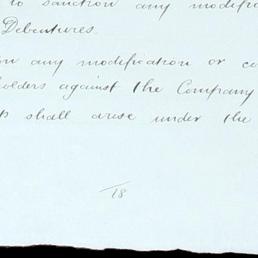 to sanction any modific
Debentures.
any modification or co
holders against the Company
shall arise under the
18